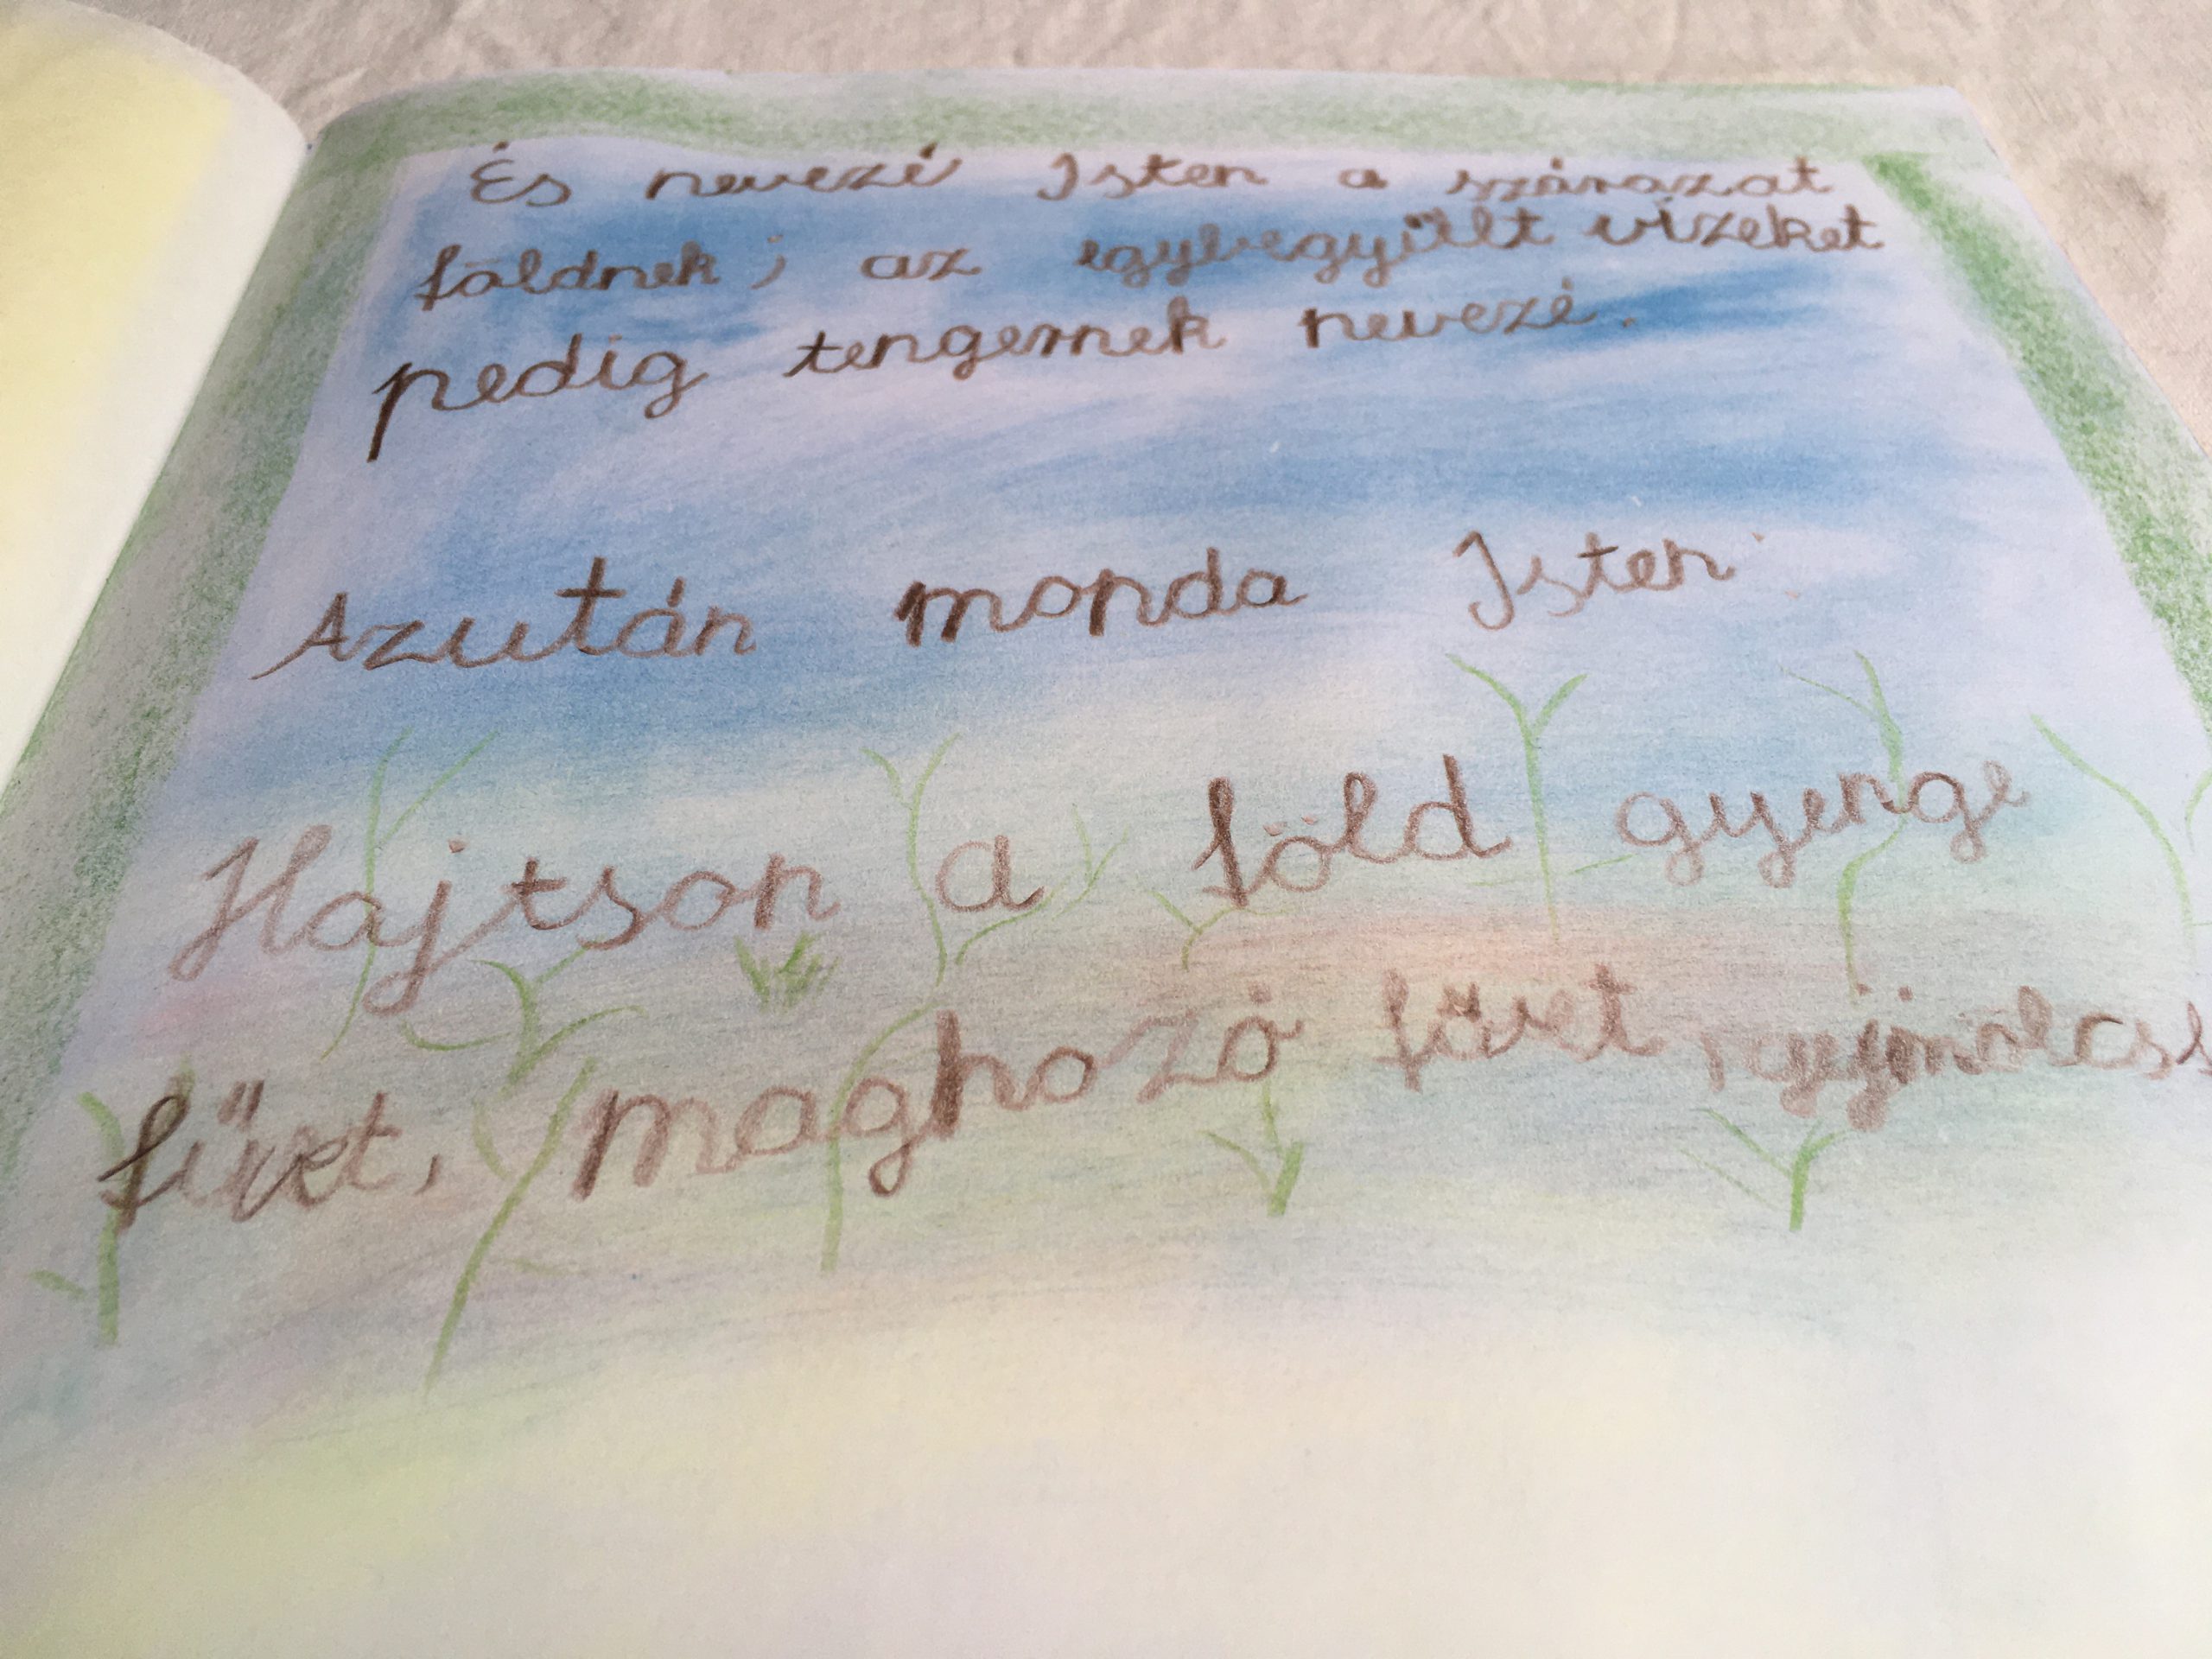 És nevezé Isten a szárazat
földnek; az egybegyűlt vízeket
pedig tengernek nevezé.
Azután monda Isten:
Hajtson a föld gyenge
füvet, maghozó füvet